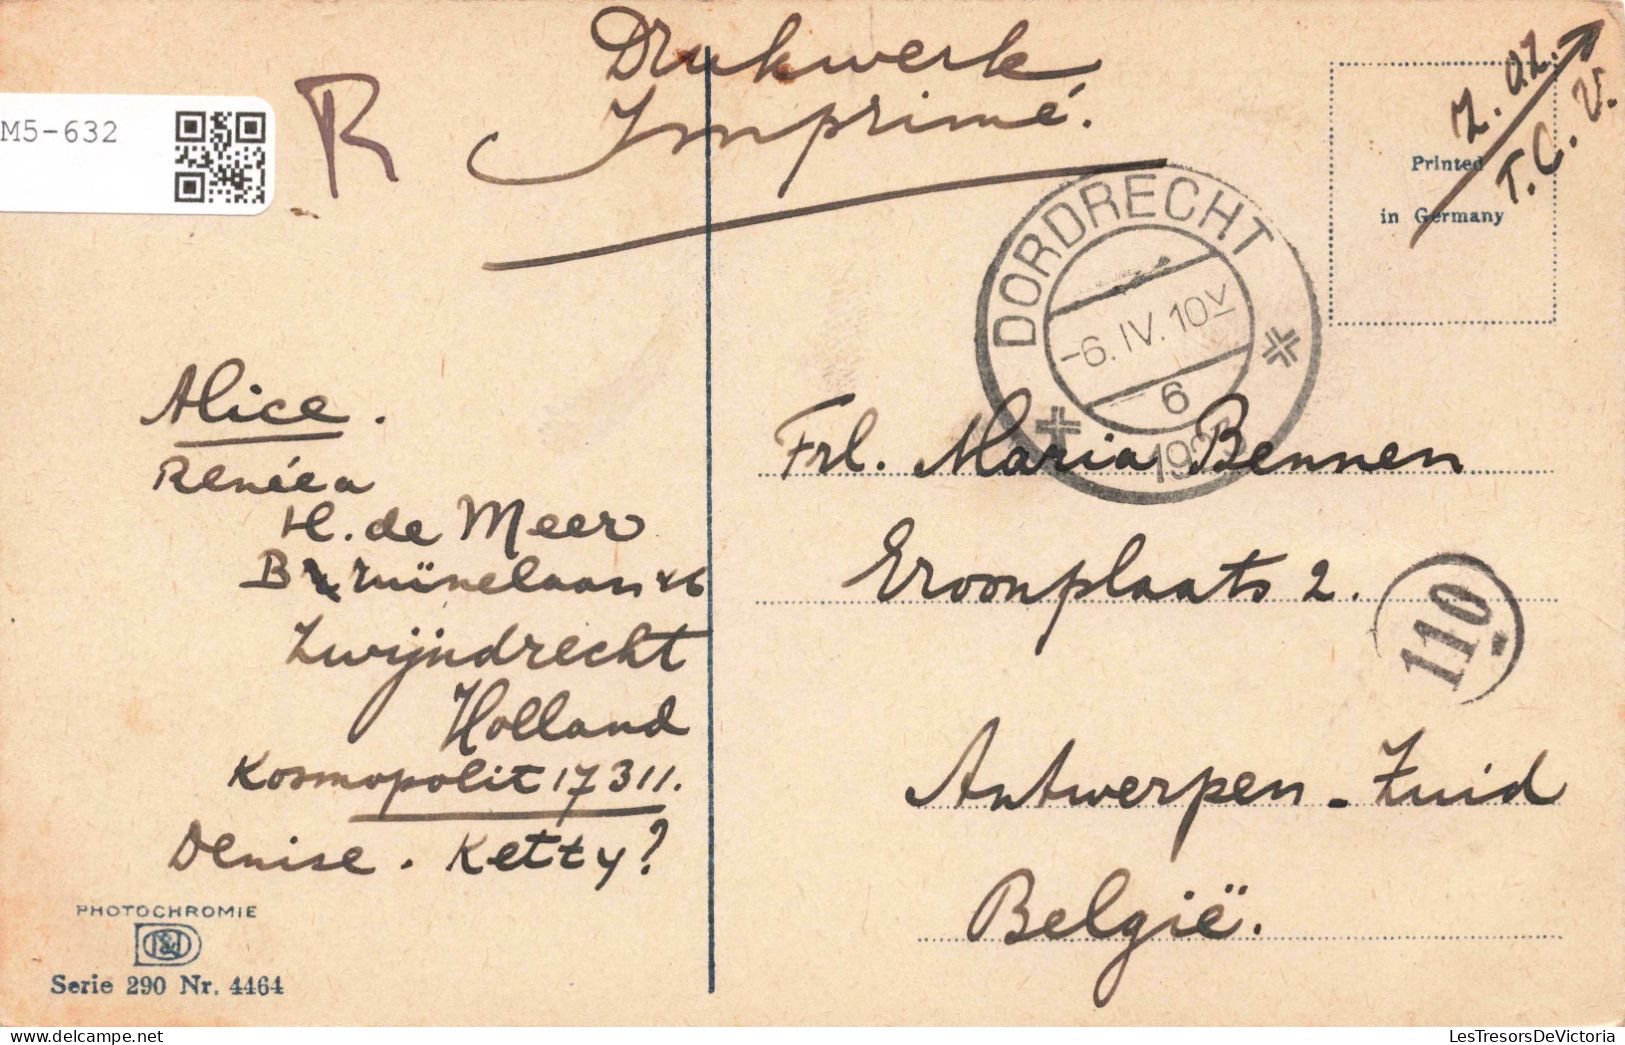 M5-632
R
Drukwerk
Imprimé.
Z.O.Z.
T.C.V.
Printed
in Germany
DORDRECHT
-6.IV.10V
6
Alice.
Renéea
H. de Meer
Zwijndrecht
Holland
Kosmopolit 17311.
Denise. Ketty?
PHOTOCHROMIE
Serie 290 Nr. 4464
Frl. Maria Bennen
2.
110
Antwerpen - Zuid
België.
LesTresorsDeVictoria